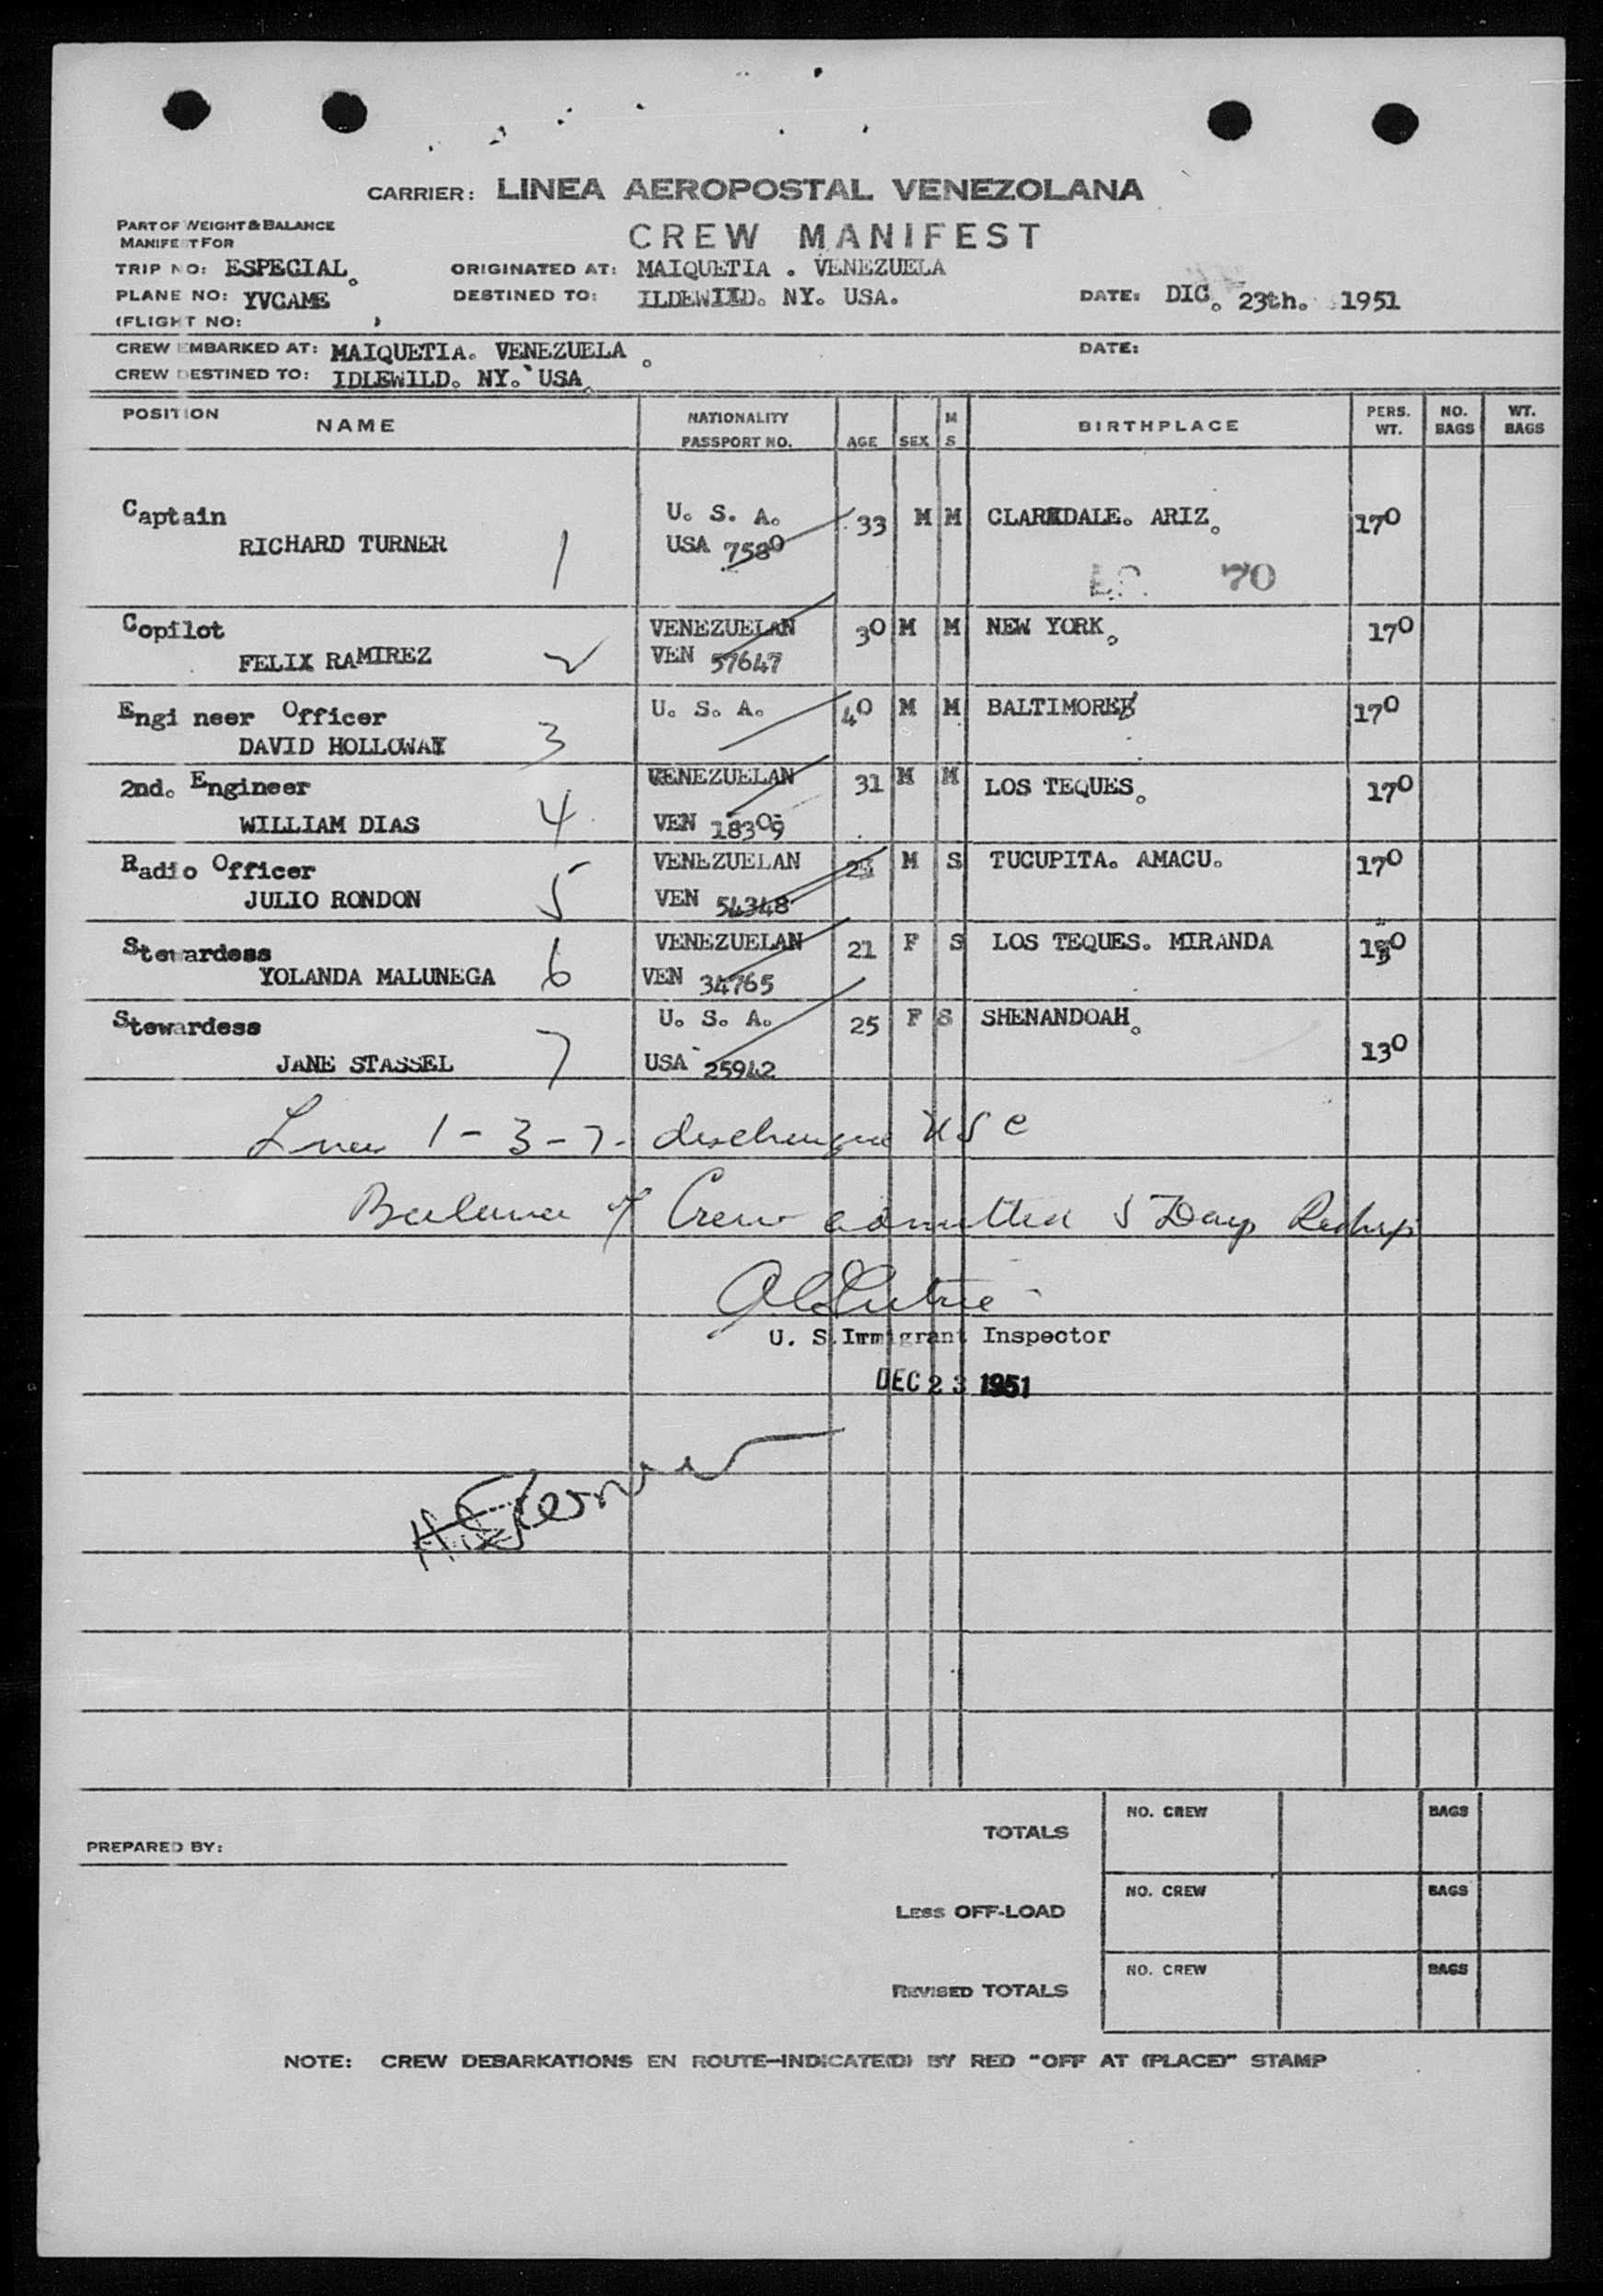 CARRIER: LINEA AEROPOSTAL VENEZOLANA
PART OF WEIGHT & BALANCE
MANIFEST FOR
CREW MANIFEST
TRIP NO: ESPECIAL. ORIGINATED AT: MAIQUETIA . VENEZUELA
PLANE NO: YVCAME DESTINED TO: ILDEWIID. NY. USA. DATE: DIC. 23th. 1951
(FLIGHT NO: )
CREW EMBARKED AT: MAIQUETIA. VENEZUELA . DATE:
CREW DESTINED TO: IDLEWILD. NY. USA.
POSITION NAME NATIONALITY PASSPORT NO. AGE SEX M S BIRTHPLACE PERS. WT. NO. BAGS WT. BAGS
Captain U. S. A. 33 M M CLARKDALE. ARIZ. 170
RICHARD TURNER 1 USA 7580
70
Copilot VENEZUELAN 30 M M NEW YORK. 170
FELIX RAMIREZ 2 VEN 57647
Engi neer Officer U. S. A. 40 M M BALTIMORE 170
DAVID HOLLOWAY 3
2nd. Engineer VENEZUELAN 31 M M LOS TEQUES. 170
WILLIAM DIAS 4 VEN 18309
Radio Officer VENEZUELAN M S TUCUPITA. AMACU. 170
JULIO RONDON 5 VEN 54348
Stewardess VENEZUELAN 21 F S LOS TEQUES. MIRANDA
YOLANDA MALUNEGA 6 VEN 34765
Stewardess U. S. A. 25 F S SHENANDOAH. 130
JANE STASSEL 7 USA 25942
Lines 1-3-7- discharged USC
Balance of Crew admitted 5 Days
U. S. Immigrant Inspector
DEC 23 1951
PREPARED BY:
TOTALS NO. CREW BAGS
LESS OFF-LOAD NO. CREW BAGS
REVISED TOTALS NO. CREW BAGS
NOTE: CREW DEBARKATIONS EN ROUTE—INDICATE(D) BY RED "OFF AT (PLACE)" STAMP